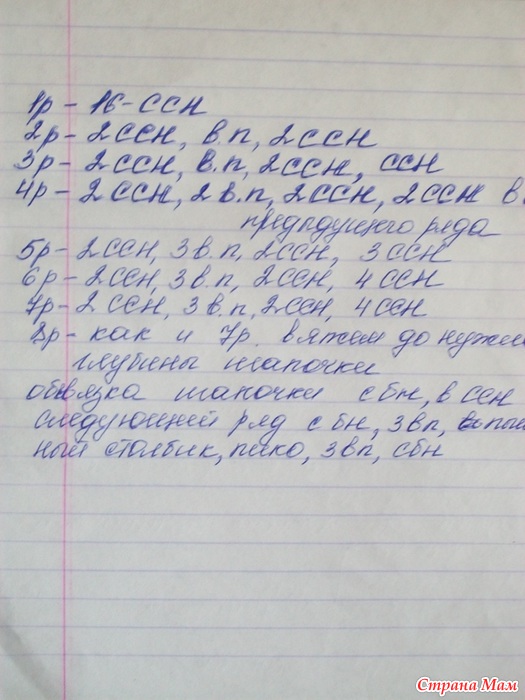 1р - 16 - ССН
2р - 2ССН, в.п, 2ССН
3р - 2ССН, в.п, 2ССН, ССН
4р - 2ССН, 2в.п, 2ССН, 2ССН в
предыдущего ряда
5р - 2ССН, 3в.п, 2ССН, 3ССН
6р - 2ССН, 3в.п, 2ССН, 4ССН
7р - 2ССН, 3в.п, 2ССН, 4ССН
8р - как и 7р. вяжем до
глубины шапочки
обвязка шапочки сбн, в ССН
следующий ряд сбн, 3вп,
ный столбик, пико, 3вп, сбн
Страна Мам